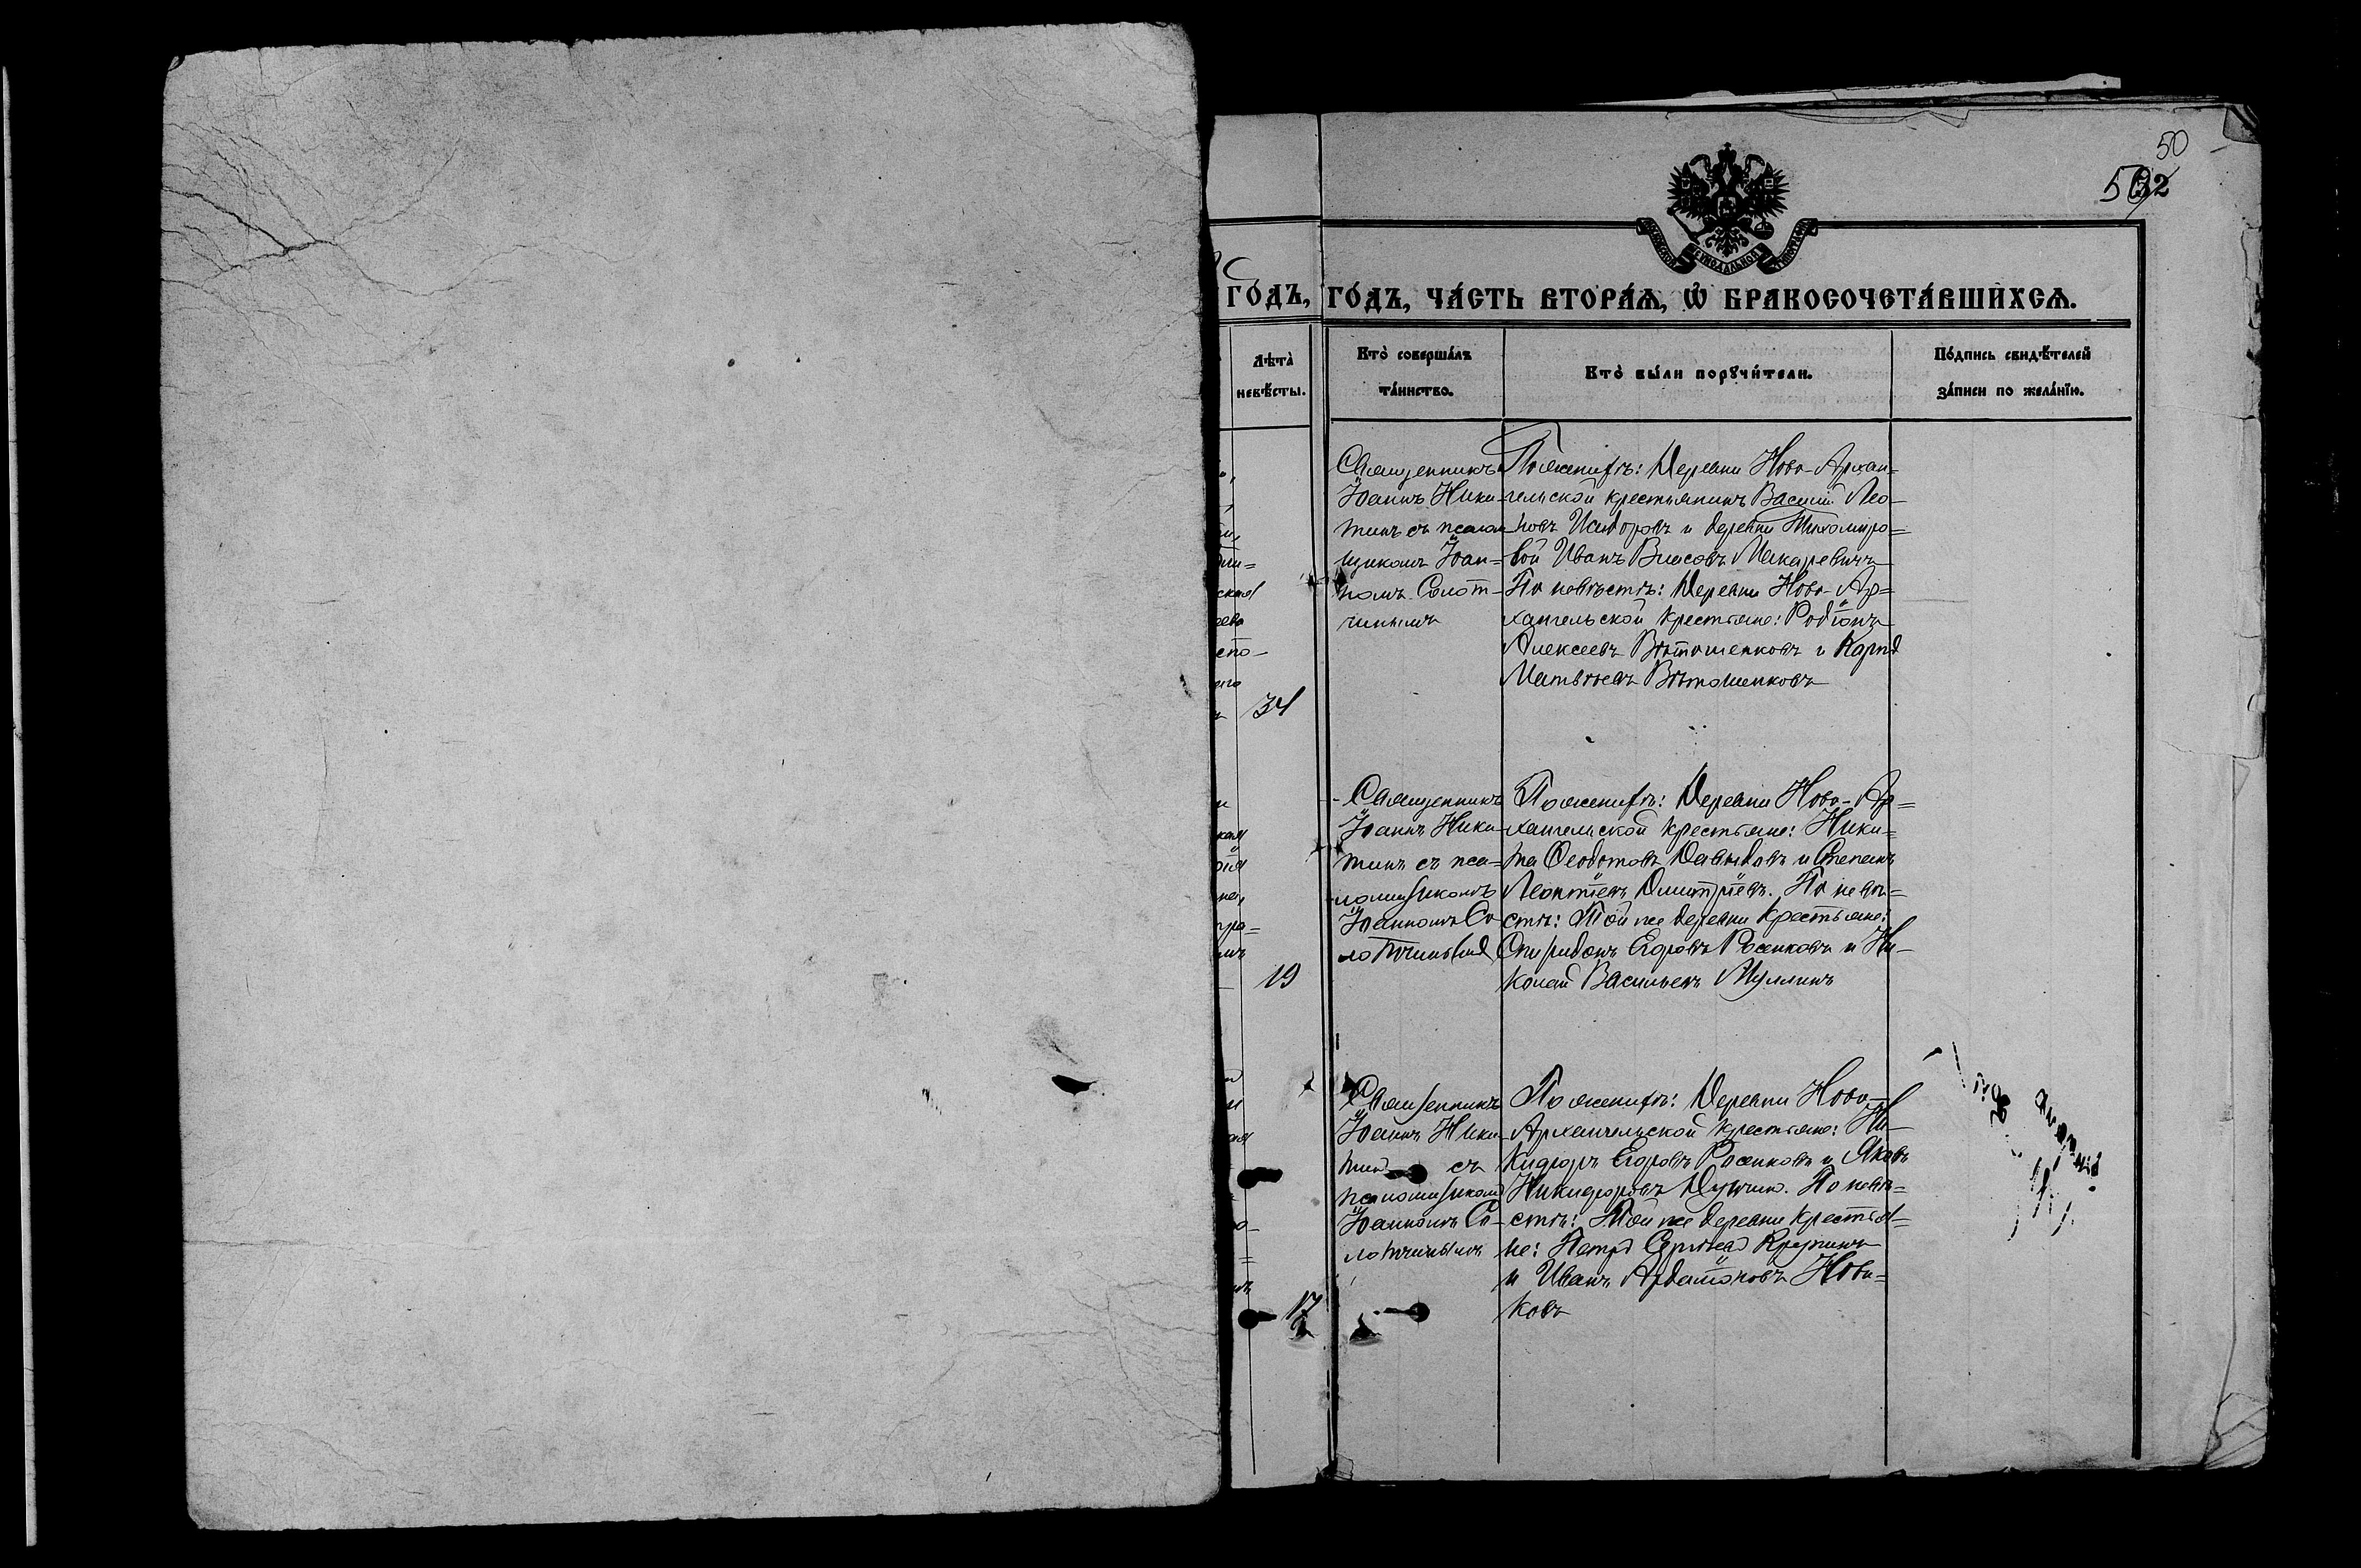 50
ГОДЪ,
ГОДЪ, ЧАСТЬ ВТОРАѦ, Ѡ БРАКОСОЧЕТАВШИХСѦ.
Лѣта
невѣсты.
Кто совершалъ
таинство.
Кто были порꙋчители.
Подпись свидѣтелей
записи по желанїю.
34
Священникъ
Іоаннъ Ники-
тинъ съ псалом-
щикомъ Іоан-
номъ Солот-
чинымъ
По женихѣ: Деревни Ново-Архан=
гельской крестьянинъ Василій Лео-
новъ Исидоровъ и деревни Тихомиро=
вой Иванъ Власовъ Макаревичъ
По невѣстѣ: Деревни Ново-Ар=
хангельской крестьяне: Родіонъ
Алексеевъ Вѣтошенковъ и Карпъ
Матвѣевъ Вѣтошенковъ
19
Священникъ
Іоаннъ Ники-
тинъ съ пса=
ломщикомъ
Іоанномъ Со-
лотчинымъ
По женихѣ: Деревни Ново-Ар=
хангельской крестьяне: Ники=
та Ѳеодотовъ Давыдовъ и Степанъ
Леонтіевъ Дмитріевъ. По невѣ=
стѣ: Той же деревни крестьяне:
Спиридонъ Егоровъ Росенковъ и Ни-
колай Васильевъ Муллинъ
17
Священникъ
Іоаннъ Ники-
тинъ съ
псаломщикомъ
Іоанномъ Со-
лотчинымъ
По женихѣ: Деревни Ново-
Архангельской крестьяне: Ни-
кифоръ Егоровъ Росенковъ и Яковъ
Никифоровъ. По невѣ=
стѣ: Той же деревни крестья=
не: Петръ Сергѣевъ
и Иванъ Нови=
ковъ